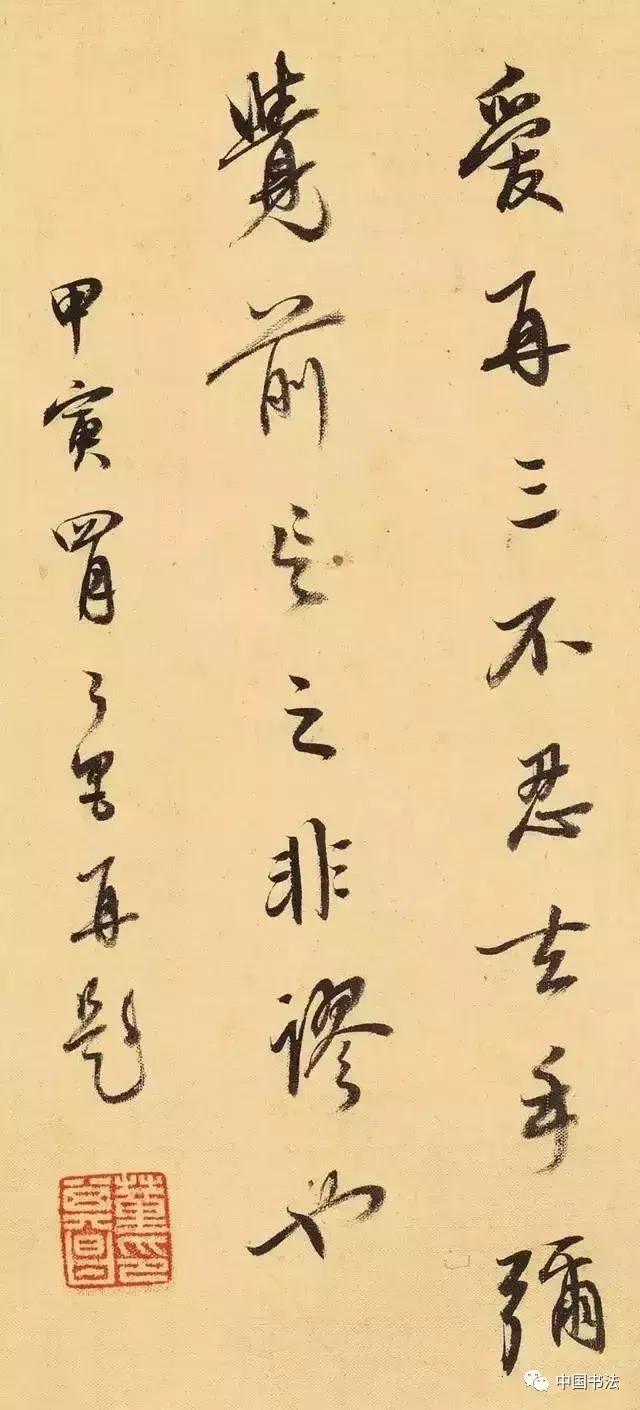 爱再三不忍去手彌
覺前言之非謬也
甲寅四月之望再題
董其昌印
中国书法